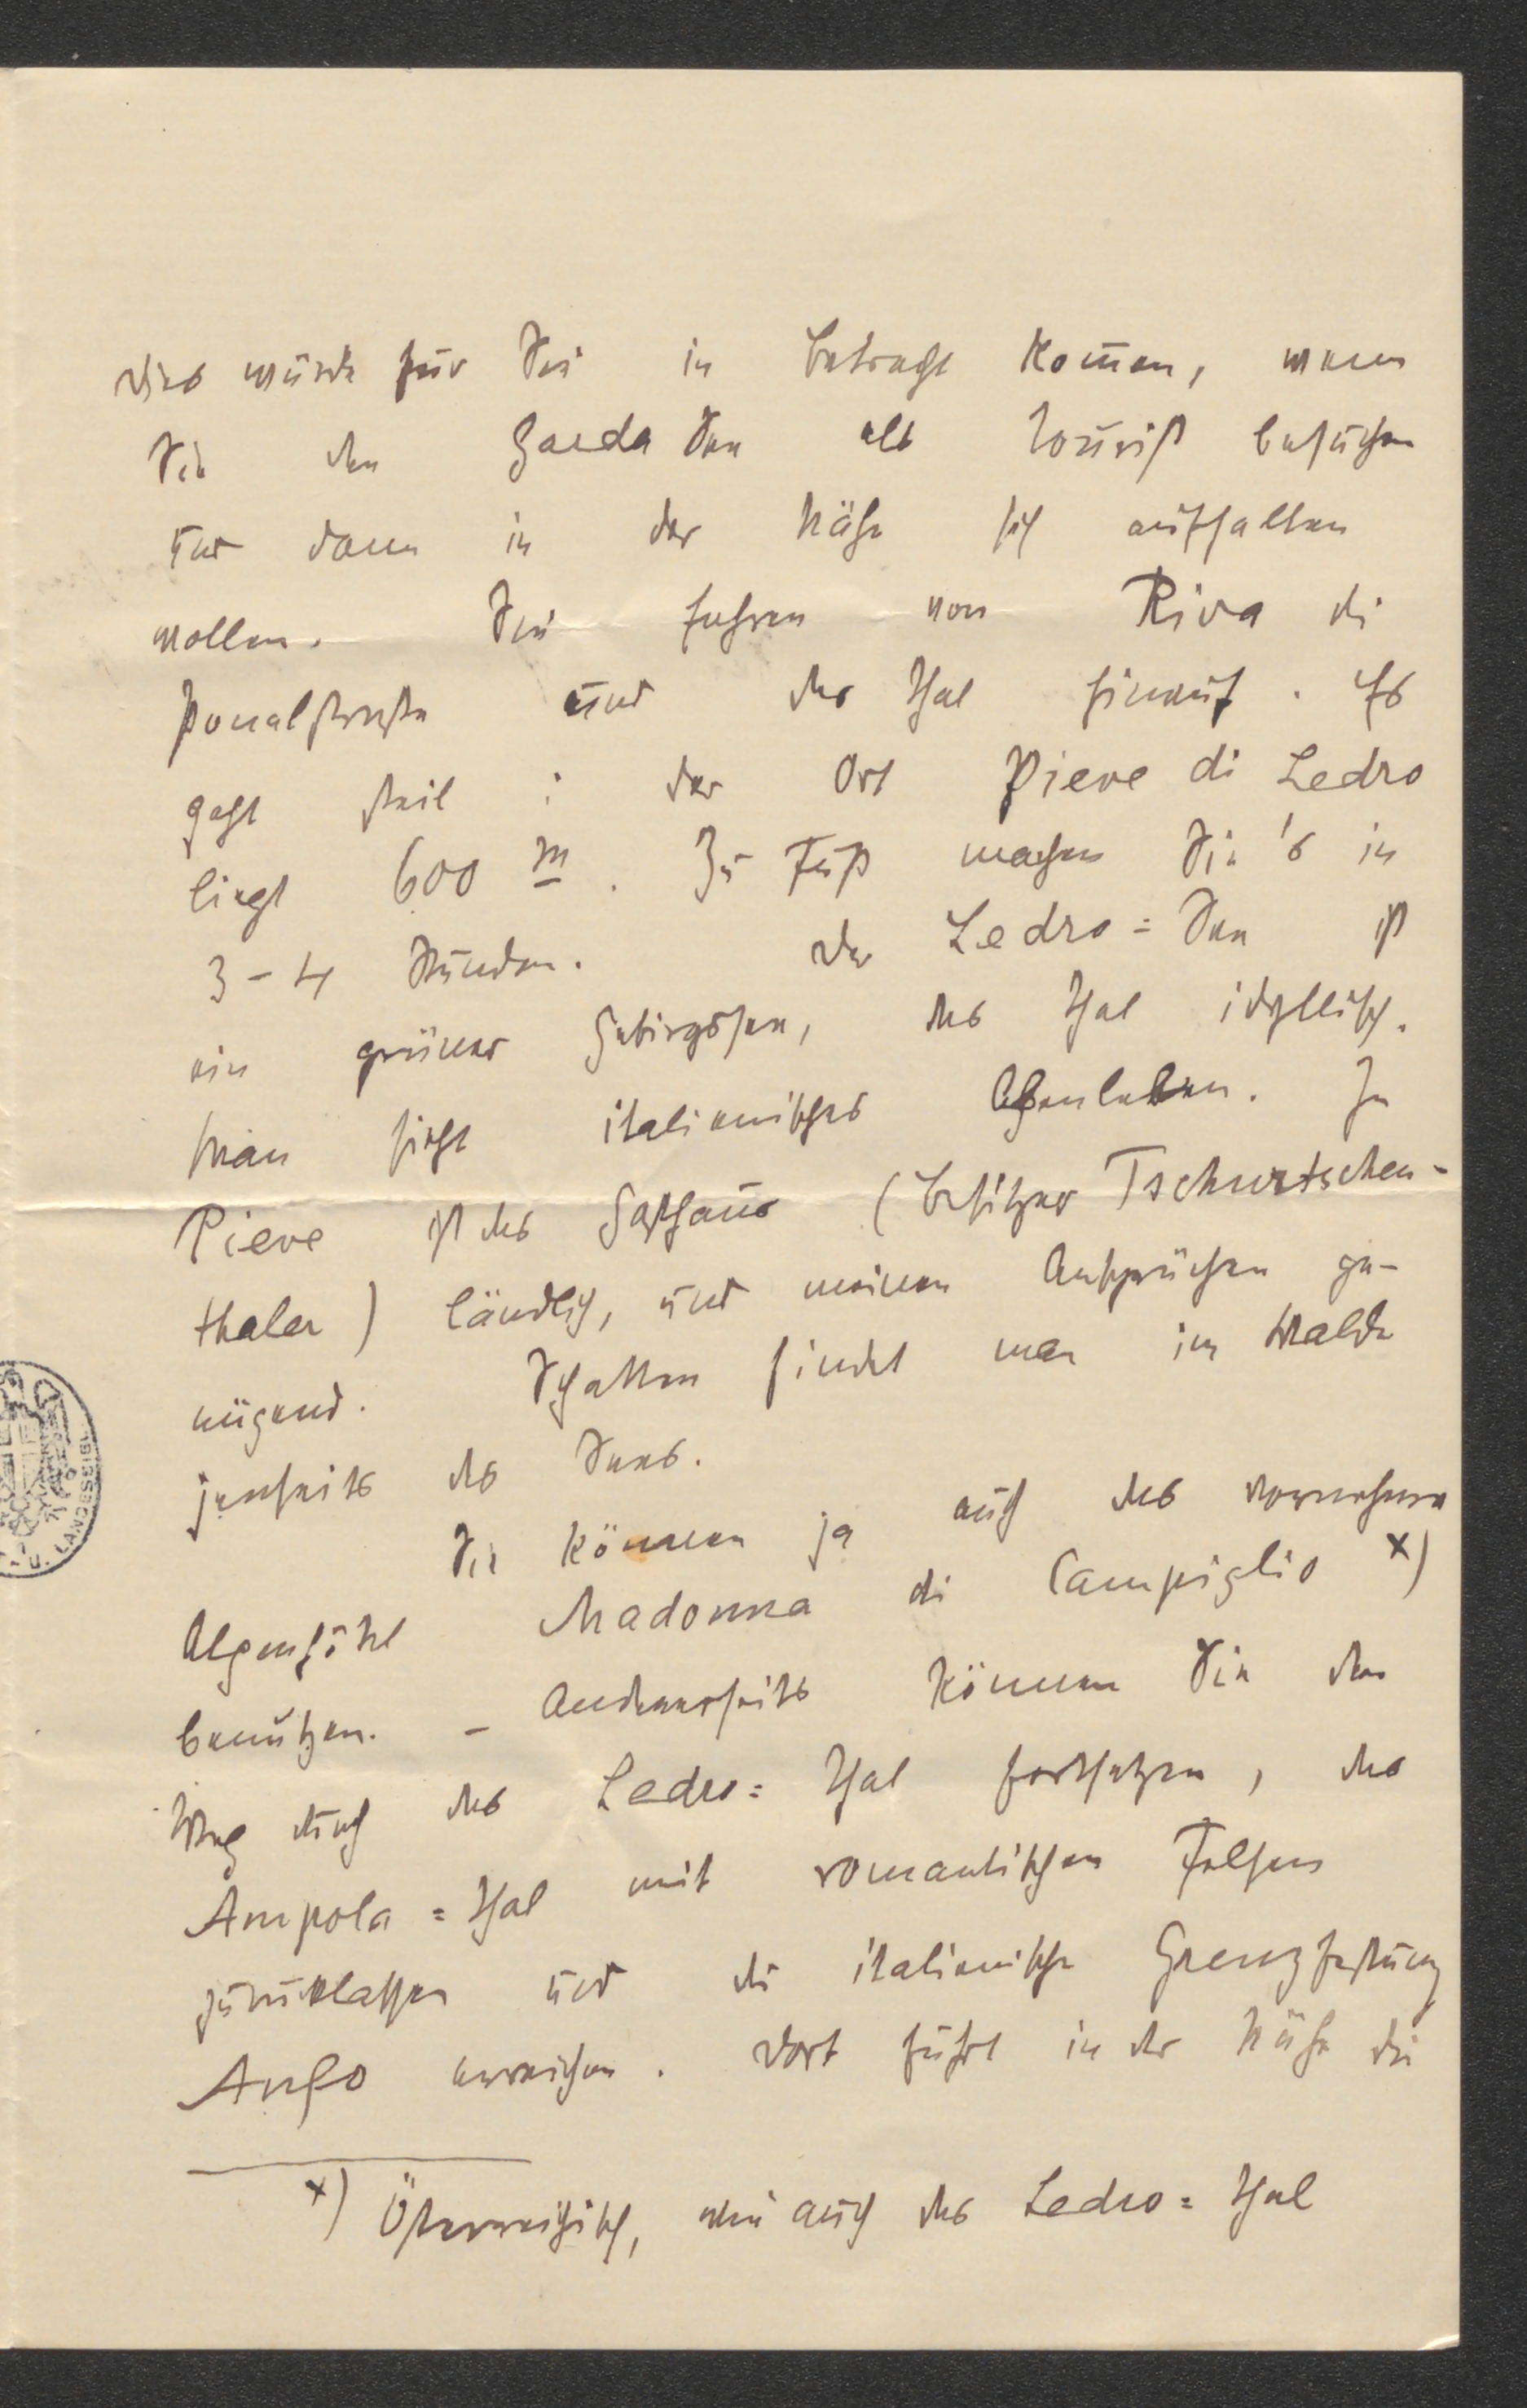 Dies würde für Sie in Betracht kom̅en, wenn
Sie den Garda See als Tourist besuchen
und dann in der Nähe sich aufhalten
wollen. Sie fahren von Riva die
Ponalstraße und das Thal hinauf. Es
geht steil; der Ort Pieve di Ledro
liegt 600 m. Zu Fuß machen Sie's in
3-4 Stunden. Der Ledro=See ist
ein grüner Gebirgssee, das Thal idyllisch.
Man sieht italienisches Alpenleben. In
Pieve ist das Gasthaus (Besitzer Tschurtschen-
thaler) ländlich, und meinen Ansprüchen ge-
nügend. Schatten findet man im Walde
jenseits des Sees.
Sie können ja auch das vornehme
Alpenhôtel Madonna di Campiglio x)
benützen. - Anderseits können Sie den
Weg durch das Ledro=Thal fortsetzen, das
Ampola=Thal mit romantischen Felsen
zurücklassen und die italienische Grenzfestung
Anfo erreichen. Dort führt in der Nähe die
x) Österreichisch, wie auch das Ledro=Thal
U. LANDESBIBL